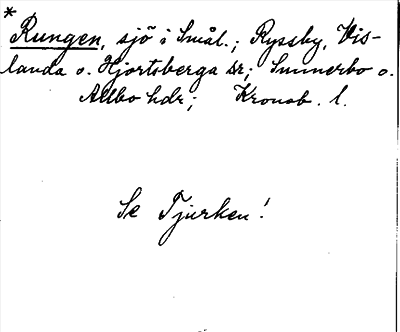 *
Rungen, sjö i Smål.; Ryssby, Vis-
landa o. Hjortsberga sr; Sunnerbo o.
Allbo hdr; Kronob. l.
Se Tjurken!